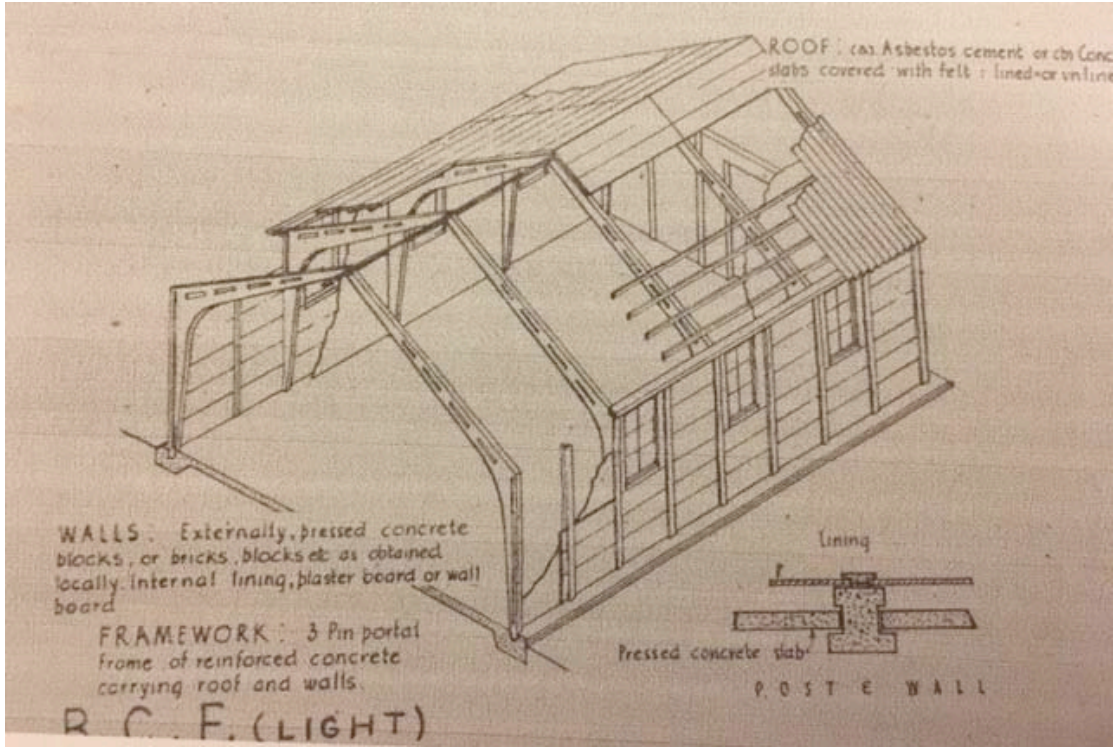 ROOF : (a). Asbestos cement or (b) Conc
slabs covered with felt : lined or unline
WALLS : Externally, pressed concrete
blocks, or bricks, blocks etc as obtained
locally. Internal lining, plaster board or wall
board
FRAMEWORK : 3 Pin portal
frame of reinforced concrete
carrying roof and walls.
R. C. F. (LIGHT)
Lining
Pressed concrete slab
POST & WALL